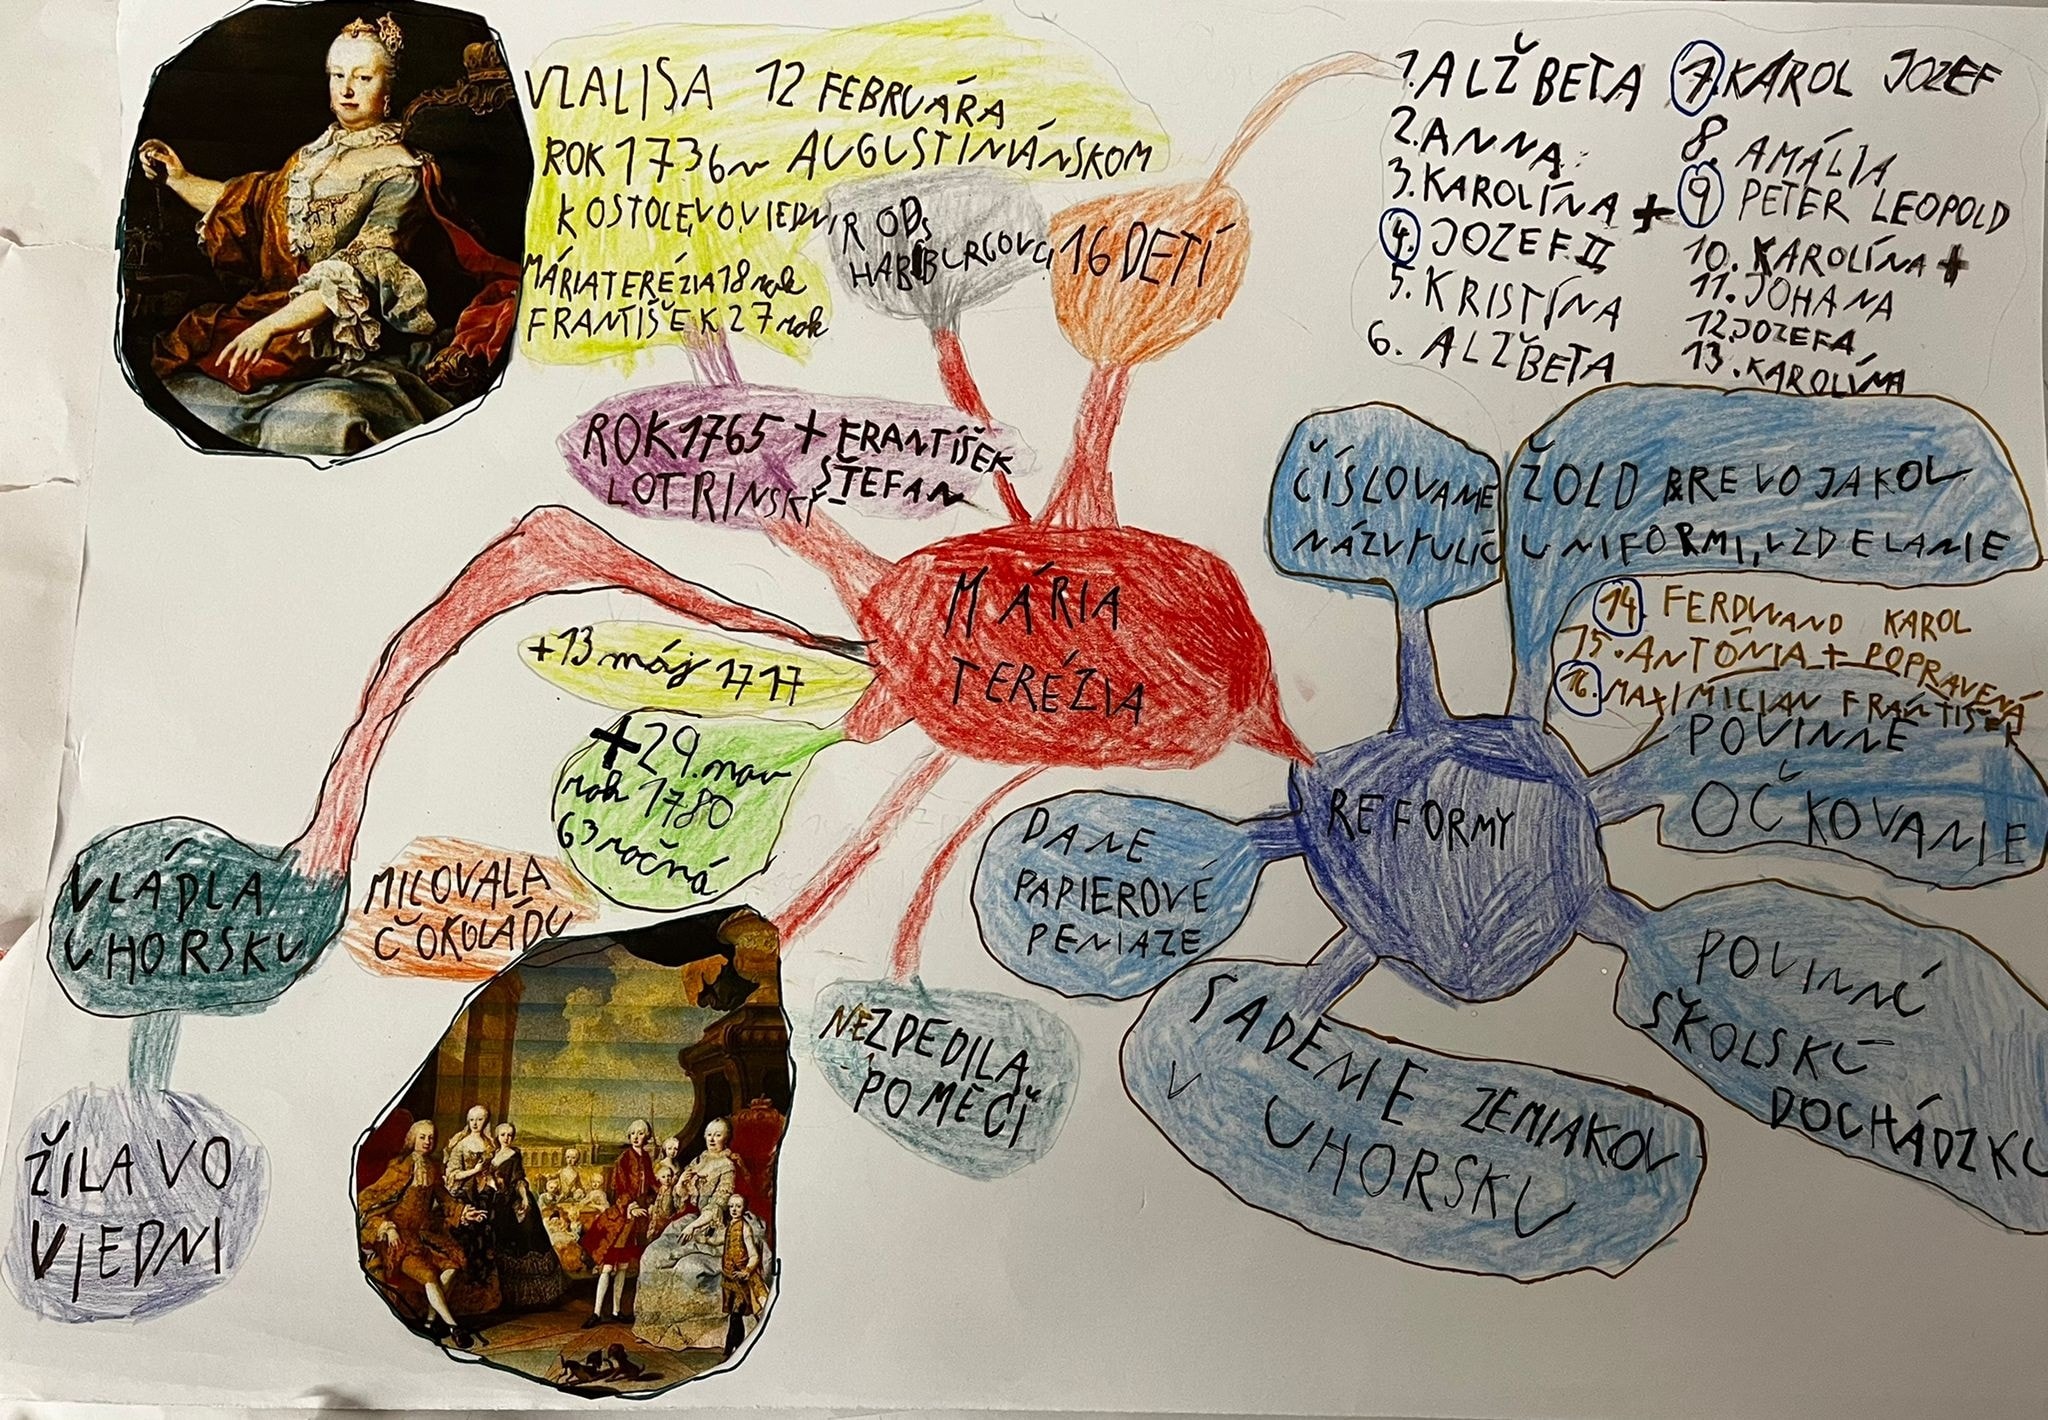 VZALI SA 12 FEBRUÁRA
ROK 1736 v AUGUSTINIÁNSKOM
KOSTOLE, VO VIEDNI,
MÁRIA TERÉZIA 18 rok
FRANTIŠEK 27 rok
ROD:
HABBURGOVCI
16 DETÍ
1. ALŽBETA
2. ANNA
3. KAROLÍNA +
4. JOZEF II
5. KRISTÍNA
6. ALŽBETA
7. KAROL JOZEF
8. AMÁLIA
9 PETER LEOPOLD
10. KAROLÍNA +
11. JOHANA
12. JOZEFA
13. KAROLÍNA
14. FERDINAND KAROL
15. ANTÓNIA + POPRAVENÁ
16. MAXIMILIAN FRANTIŠEK
ROK 1765 + FRANTIŠEK
ŠTEFAN
LOTRINSKÝ
MÁRIA
TERÉZIA
+13 máj 1717
+29. nov
rok 1780
63 ročná
VLÁDLA
UHORSKU
ŽILA VO
VJEDNI
MILOVALA
ČOKOLÁDU
NEZDEDILA
PO MEČI
REFORMY
ČÍSLOVANIE
NÁZVY ULÍC
ŽOLD PRE VOJAKOV
UNIFORMI, VZDELANIE
POVINNÉ
OČKOVANIE
POVINNÚ
ŠKOLSKÚ
DOCHÁDZKU
SADENIE ZEMIAKOV
V UHORSKU
DANE
PAPIEROVÉ
PENIAZE